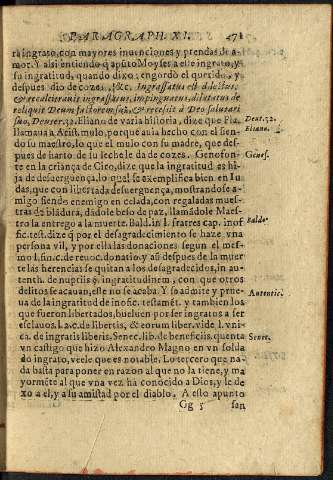 PARAGRAPH. XI. 471
ra ingrato, con mayores inuenciones y prendas de a-
mor. Y assi entiendo q̃ apũto Moyses a este ingrato, y
su ingratitud, quando dixo: engordò el querido, y
despues dio de cozes, &c. Ingrassatus est dilectus,
& recalcitrauit ingrassatus, impinguatus, dilatatus de
reliquit Deum factorem suũ, & recessit à Deo salutari
suo, Deuter. 32. Eliano de varia historia, dize que Pla.
Deut. 32.
Eliano.
llamaua a Arist. mulo, porque auia hecho con el sien-
do su maestro, lo que el mulo con su madre, que des-
pues de harto de su leche le da de cozes. Genofon-
Genof.
te en la criança de Ciro, dize que la ingratitud es hi-
ja de desuerguença, lo qual se exemplifica bien en Iu
das, que con libertad a desuerguença, mostrandose a-
migo siendo enemigo en celada, con regaladas mues-
tras de blãdura, dãdole beso de paz, llamãdole Maes-
tro la entrego a la muerte. Bald. in l. fratres cap. inof
Baldo
fic. test. dize q̃ por el desagradecimiento se haze vna
persona vil, y por ella las donaciones segun el mes-
mo l. fin. c. de reuoc. donatio. y aũ despues de la muer
te las herencias se quitan a los desagradecidos, in au-
tenth. de nuptijs §. ingratitudinem, con que otros
delitos se acauan, este no se acaba. Y so admite y prue-
Autentic.
ua de la ingratitud de inofic. testamẽt. y tambien los
que fueron libertados, bueluen por ser ingratos a ser
esclauos. l. 2. c. de libertis, & eorum liber. vide l. vni-
ca. de ingratis liberis, Senec. lib. de beneficiis. quenta
Senec.
vn castigo que hizo Alexandro Magno en vn solda
do ingrato, veele que es notable. Lo tercero que na-
da basta para poner en razon al que no la tiene, y ma
yormẽte al que vna vez ha conocido a Dios, y le de
xo a el, y a su amistad por el diablo. A esto apunto
Gg 5 san